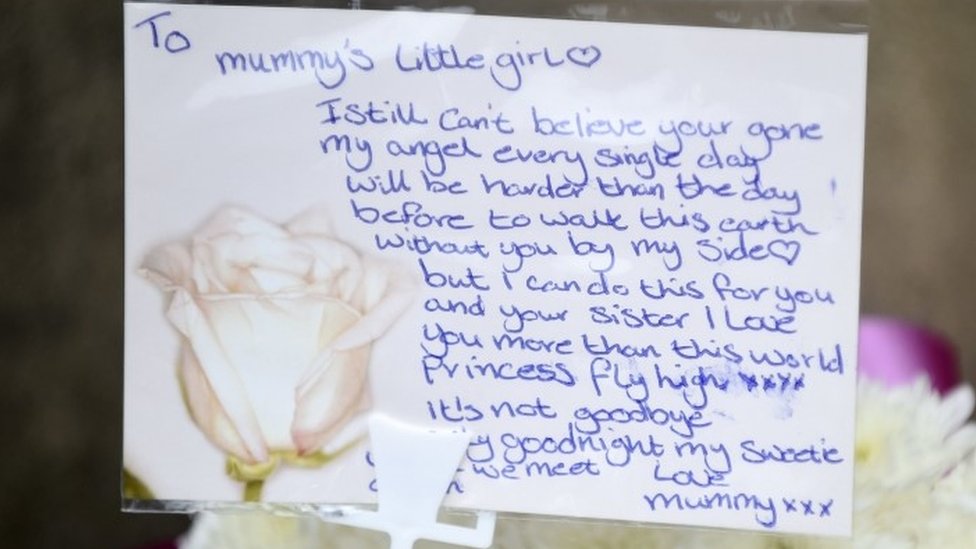 To
mummy's little girl♡
I still can't believe your gone
my angel every single day
will be harder than the day
before to walk this earth
without you by my side♡
but I can do this for you
and your sister I Love
you more than this world
Princess fly high xxxx
it's not goodbye
goodnight my sweetie
we meet Love
mummy xxx